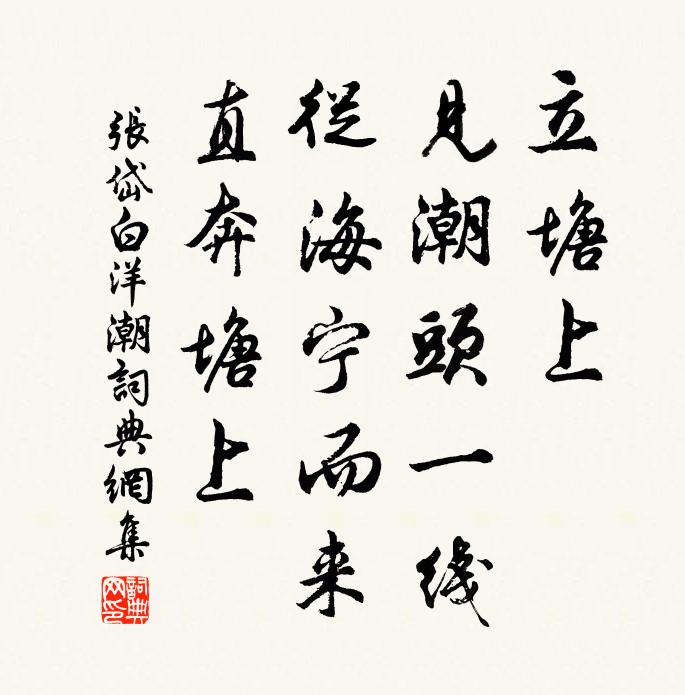 立塘上
見潮頭一綫
從海宁而来
直奔塘上
張岱白洋潮詞典網集
詞典網印